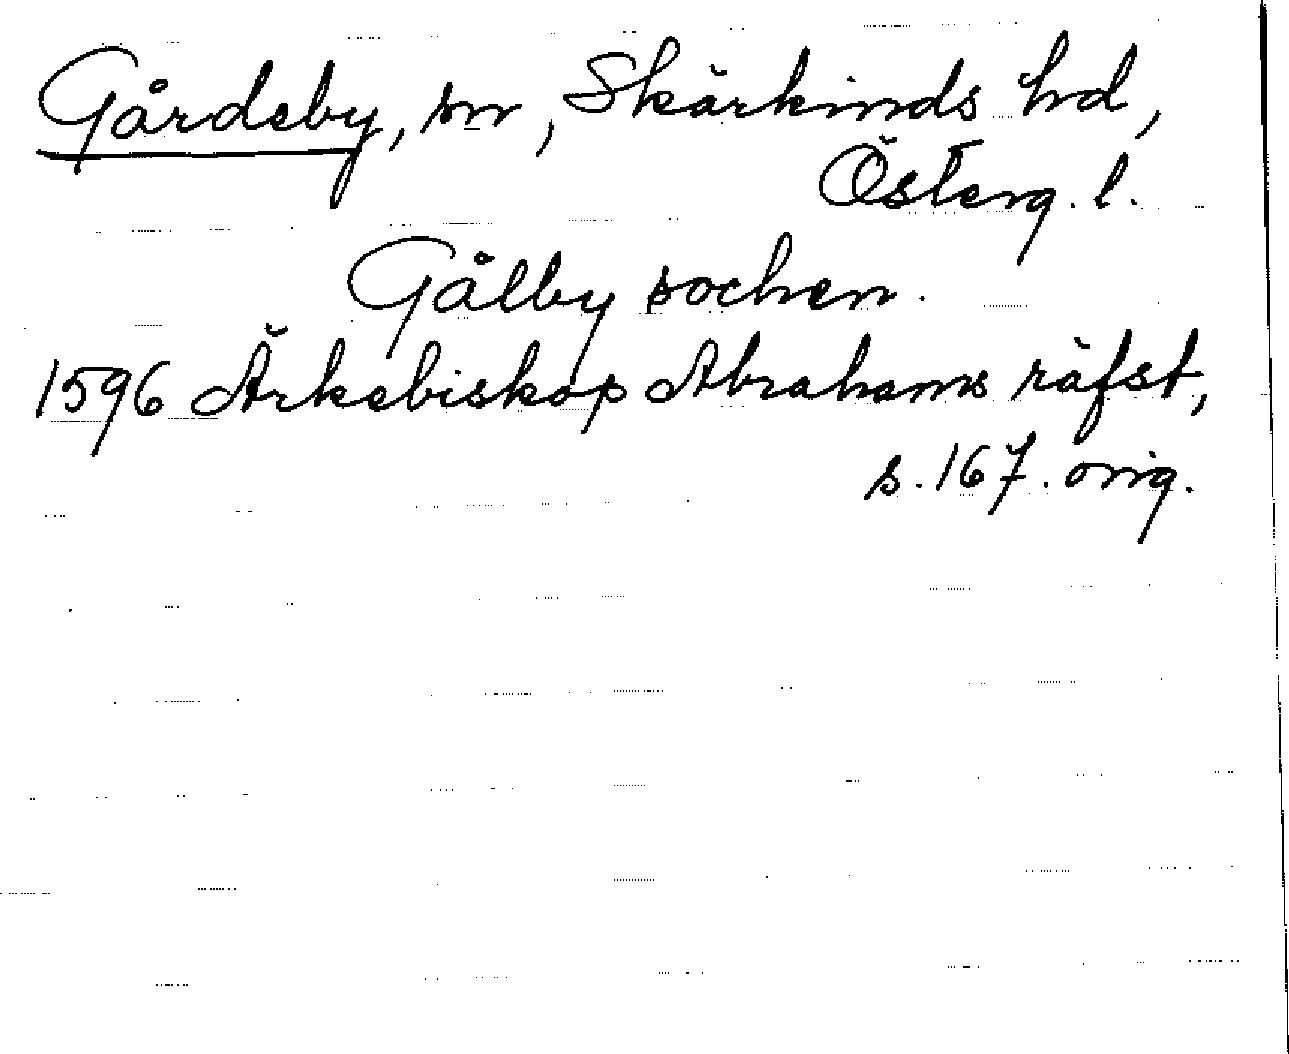 Gårdeby, sn, Skärkinds hd,
Österg. l.
Gålby sochen.
1596 Ärkebiskop Abrahams räfst,
s. 167. orig.